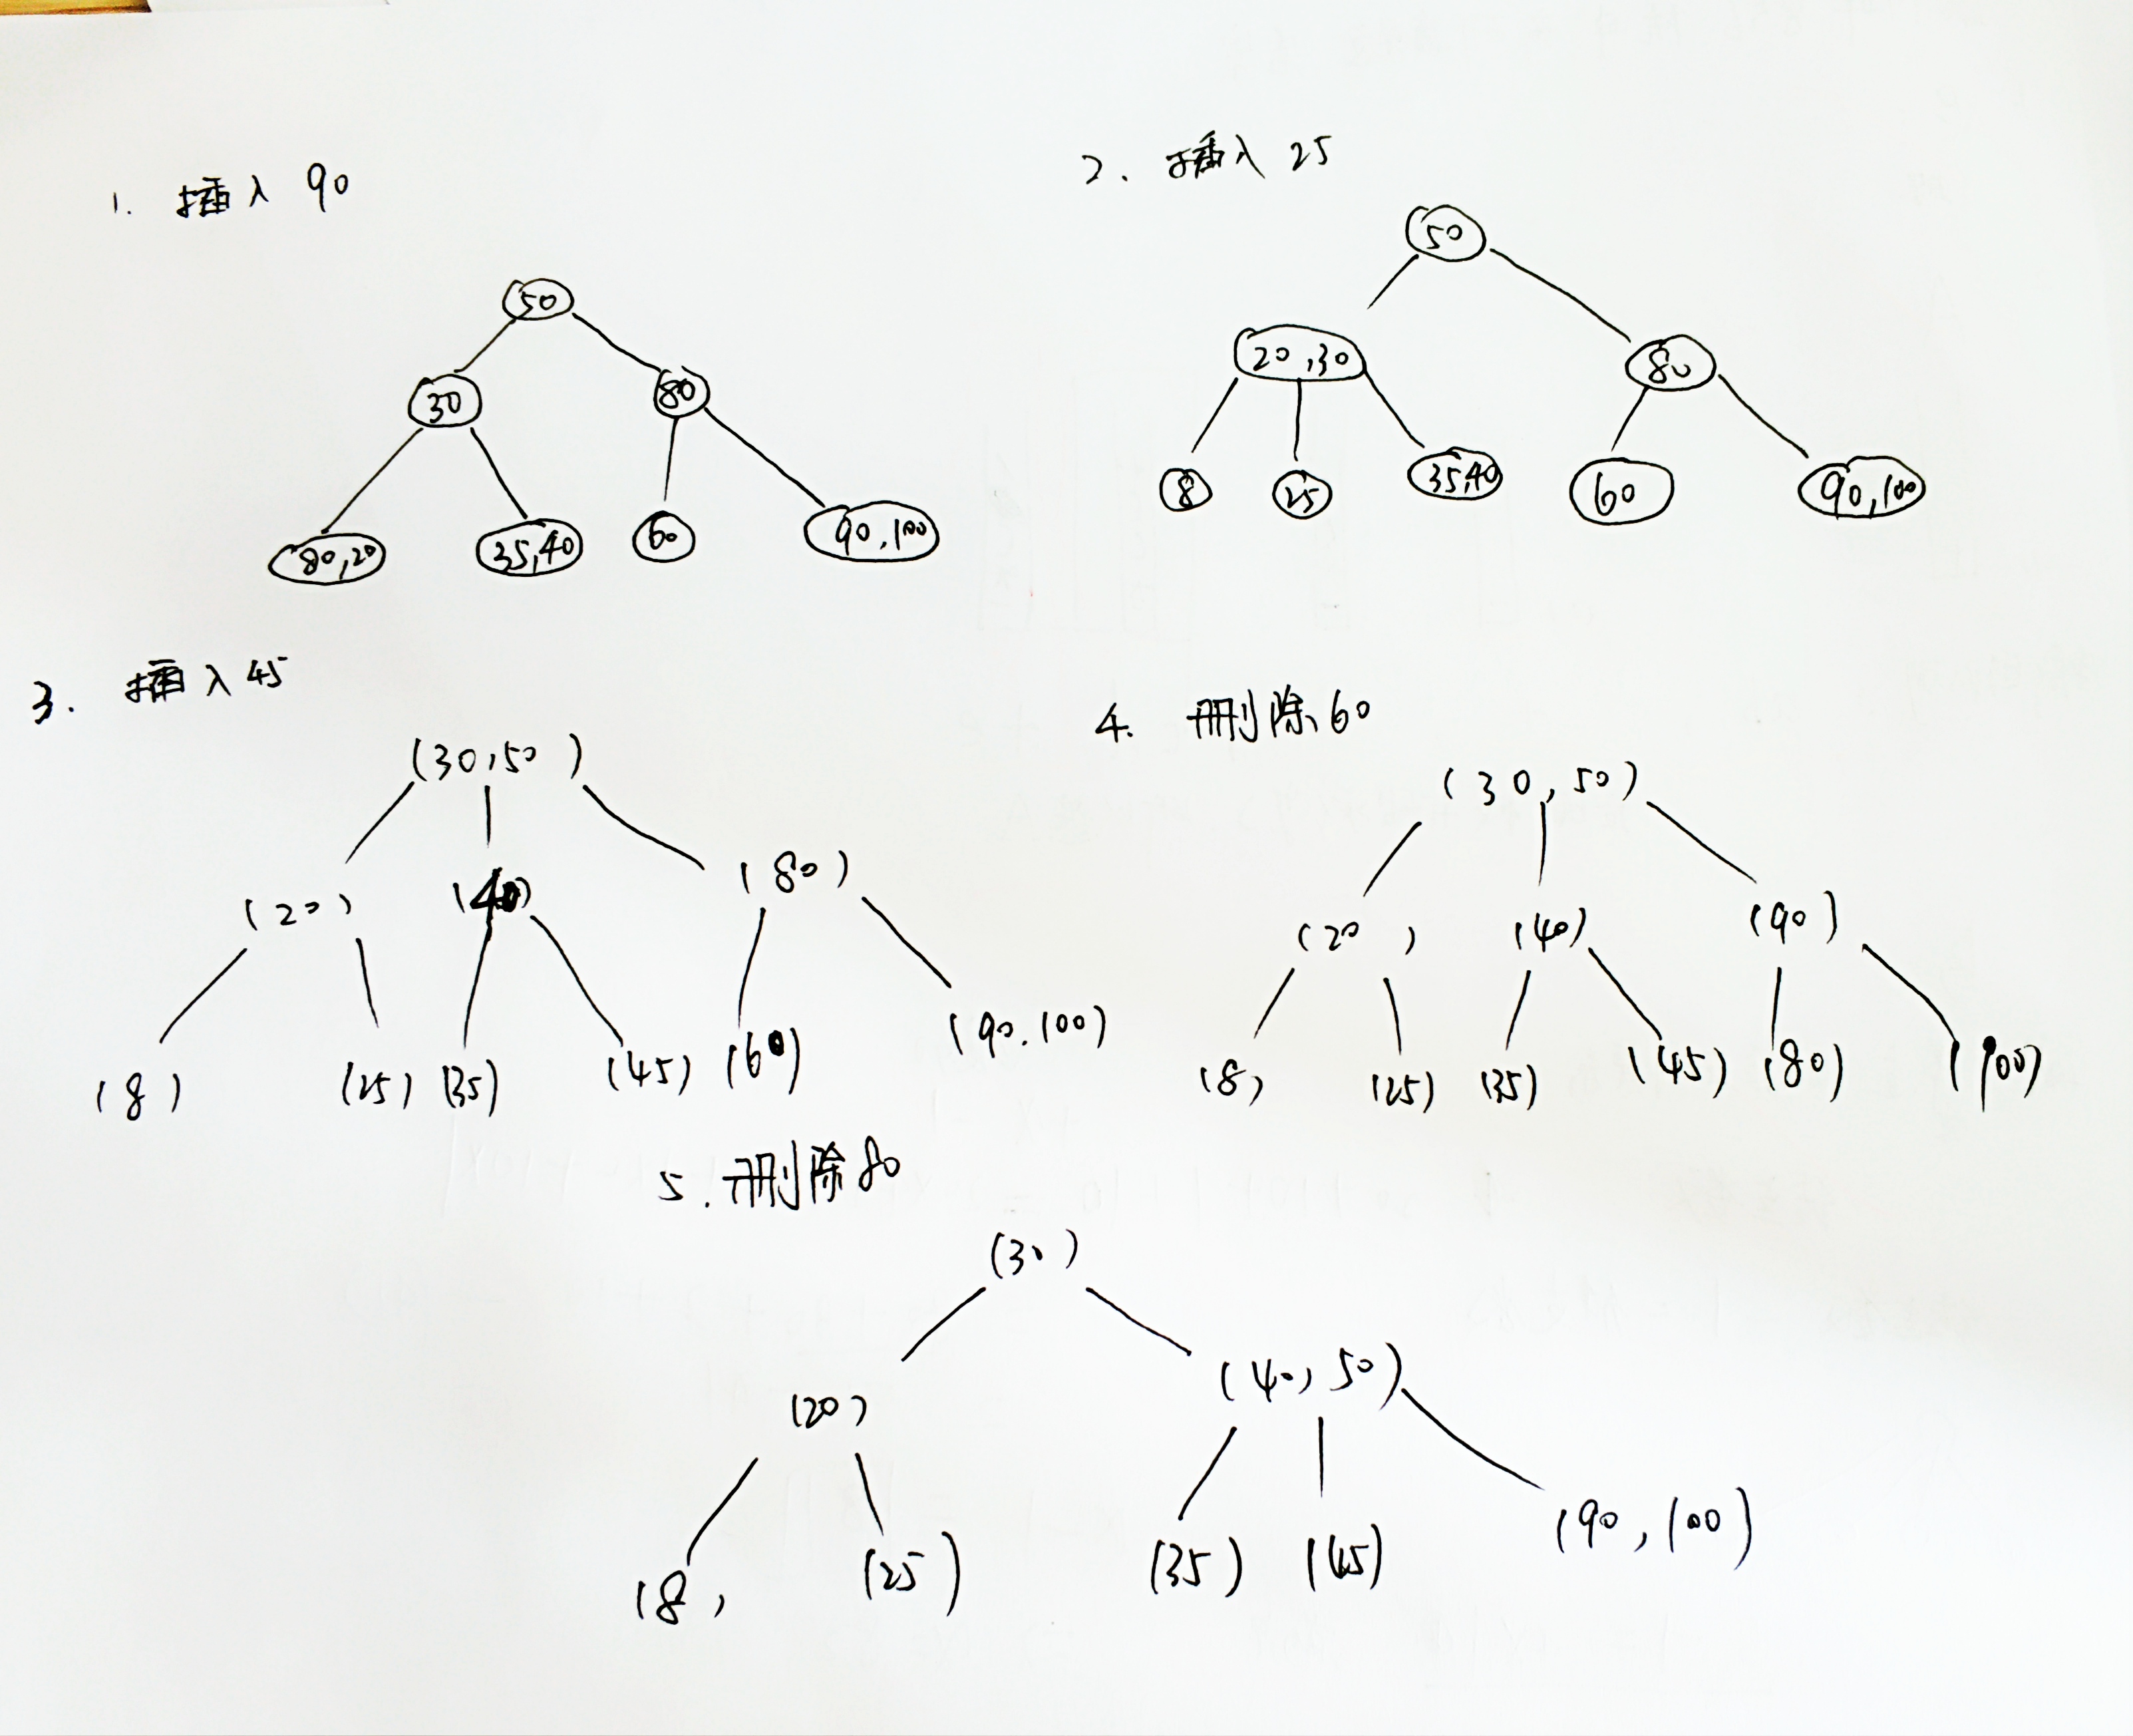 1. 插入 90
50
30 80
80,20 35,40 60 90,100
2. 插入 25
50
20,30 80
8 25 35,40 60 90,100
3. 插入 45
(30,50)
(20) (40) (80)
(8) (25) (35) (45) (60) (90.100)
4. 删除 60
(30,50)
(20) (40) (90)
(8) (25) (35) (45) (80) (100)
5. 删除 80
(30)
(20) (40,50)
(8) (25) (35) (45) (90,100)